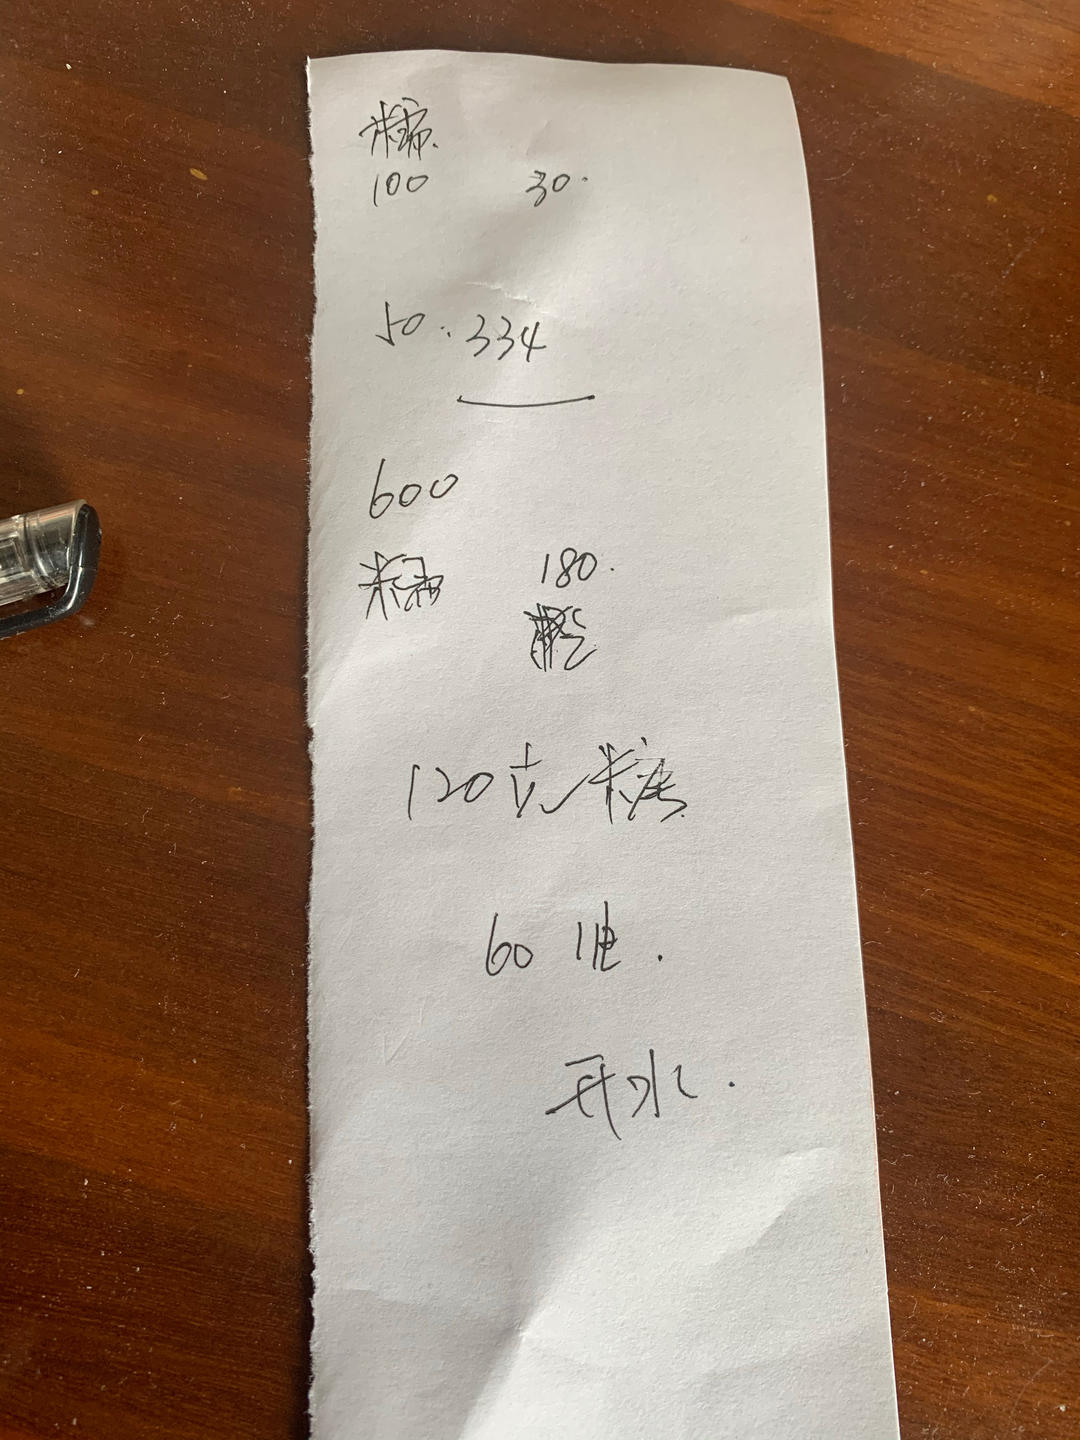 糖
100 30.
50. 334
600
糖 180.
120克糖
60
开水.